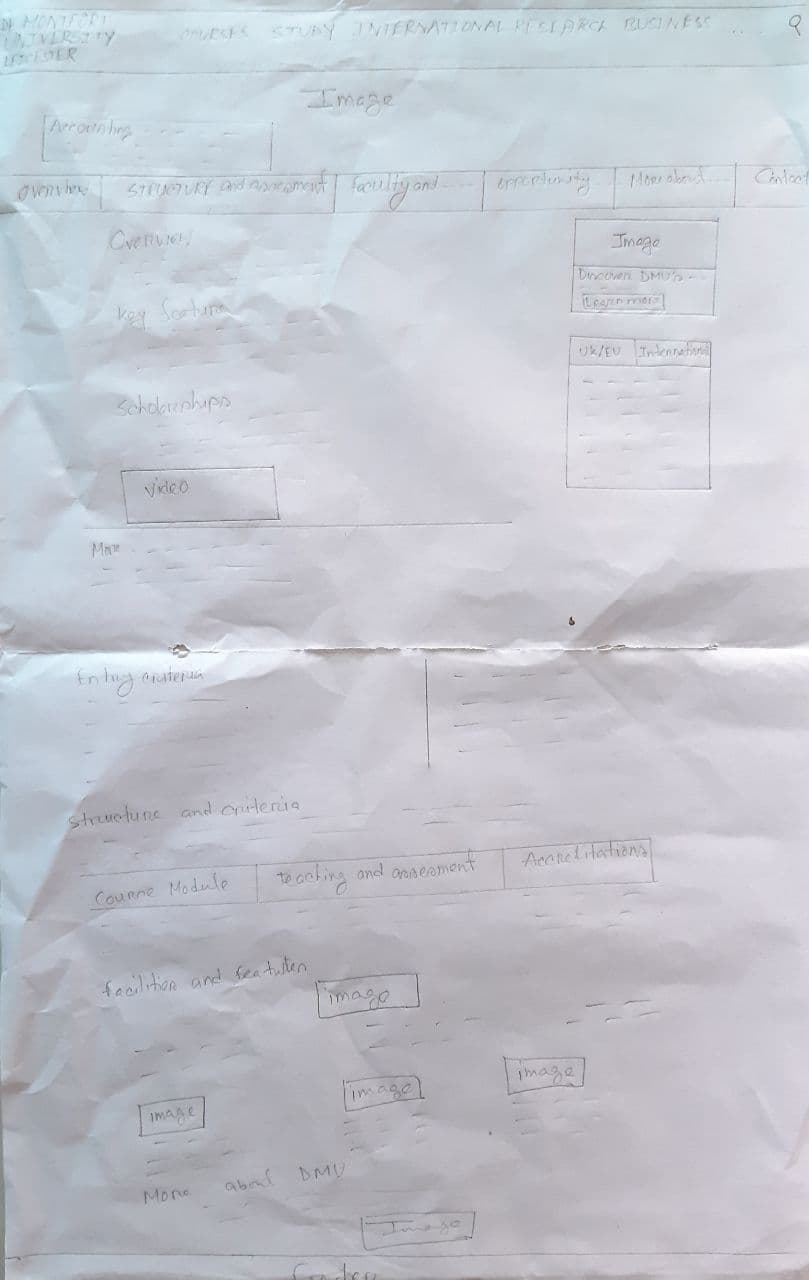 MONTFORT
UNIVERSITY
COURSES STUDY INTERNATIONAL RESEARCH BUSINESS ...
Image
Accounting - - -
Overview
STRUCTURE and assessment
faculty and ----
opportunity
More about ...
Contact
Overview
Image
Discover DMU's --
Learn more
Key feature
UK/EU
International
Scholarships
Video
More
Entry criteria
structure and criteria
Course Module
teaching and assessment
Accreditations
facilities and features
image
image
image
image
More about DMU
Image